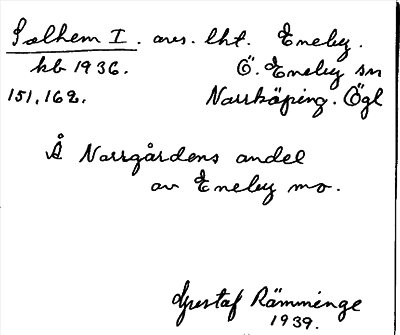 Solhem I. avs. lht. Eneby.
kb 1936. Ö. Eneby sn
151,162. Norrköping. Ögl
Å Norrgårdens andel
av Eneby mo.
Gustaf Rämminge
1939.